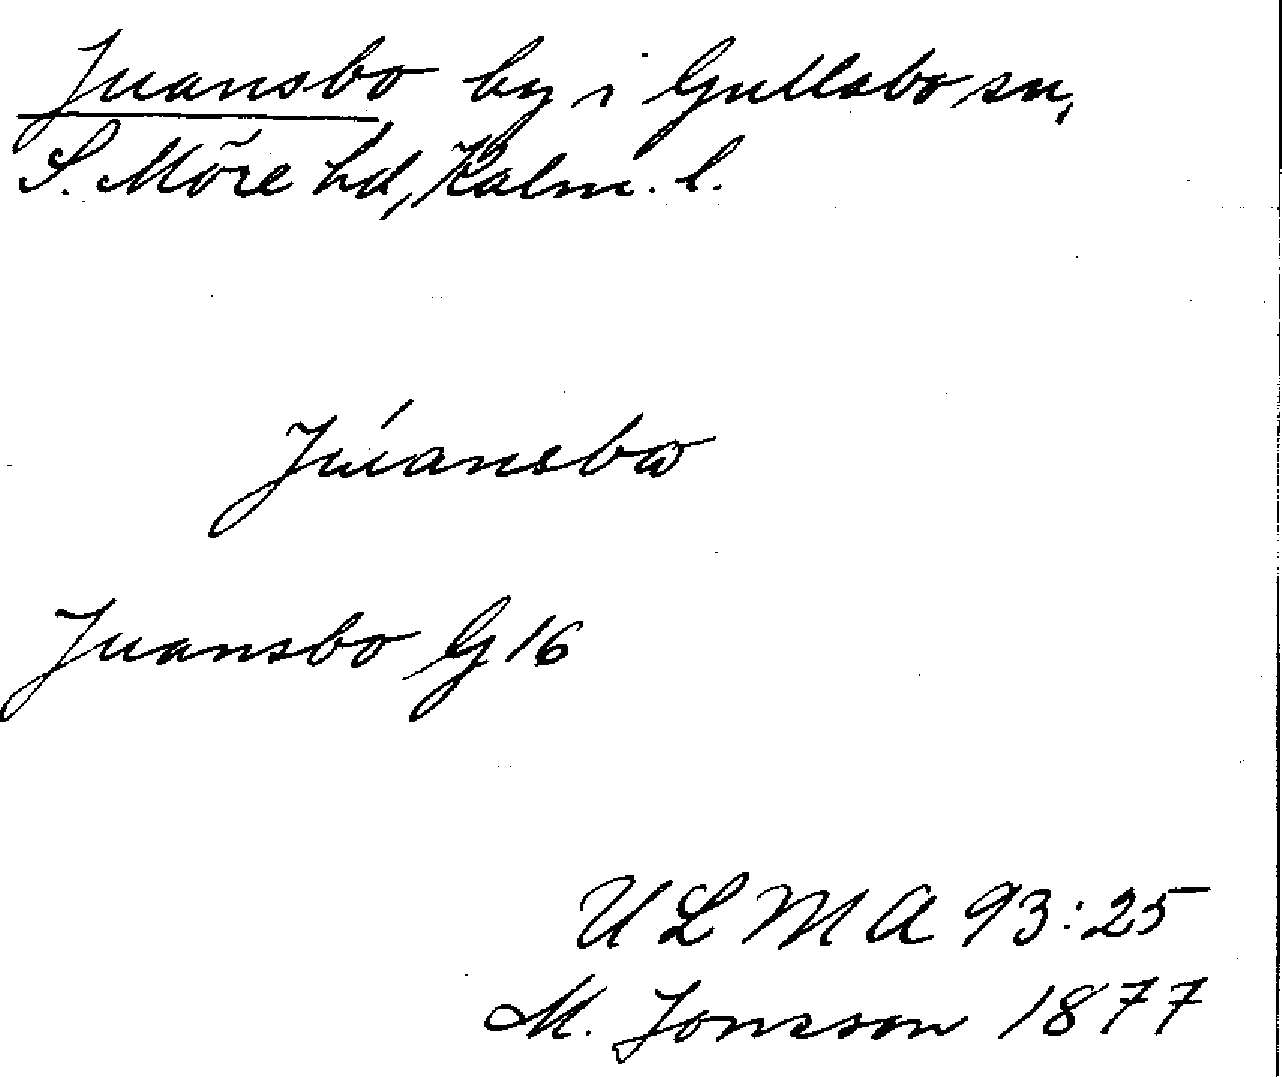 Juansbo by i Gullabo sn,
S. Möre hd, Kalm. l.
Júansbω
Juansbo G 16
ULMA 93:25
M. Jonsson 1877